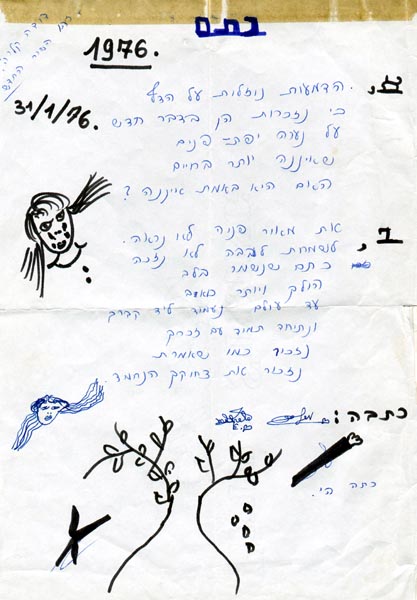 כתם
1976.
31/1/76.
א,
הדמעות נוזלות על הדף
כי נזכרות הן בדבר חדש
על נערה יפת-פנים
שאיננה יותר בחיים
האם היא באמת איננה?
ב,
את מאור פניה לא נראה.
לשמחות לעגבה לא נזכה
כתם שנשמר בלב
הולך ויותר כואב
עד עולם נעמוד ליד קברך
ונתיחד תמיד עם זכרך
נזכור כמו שאמרת
נזכור את צחוקך הנחמד.
כתבה:
כתה ה'.